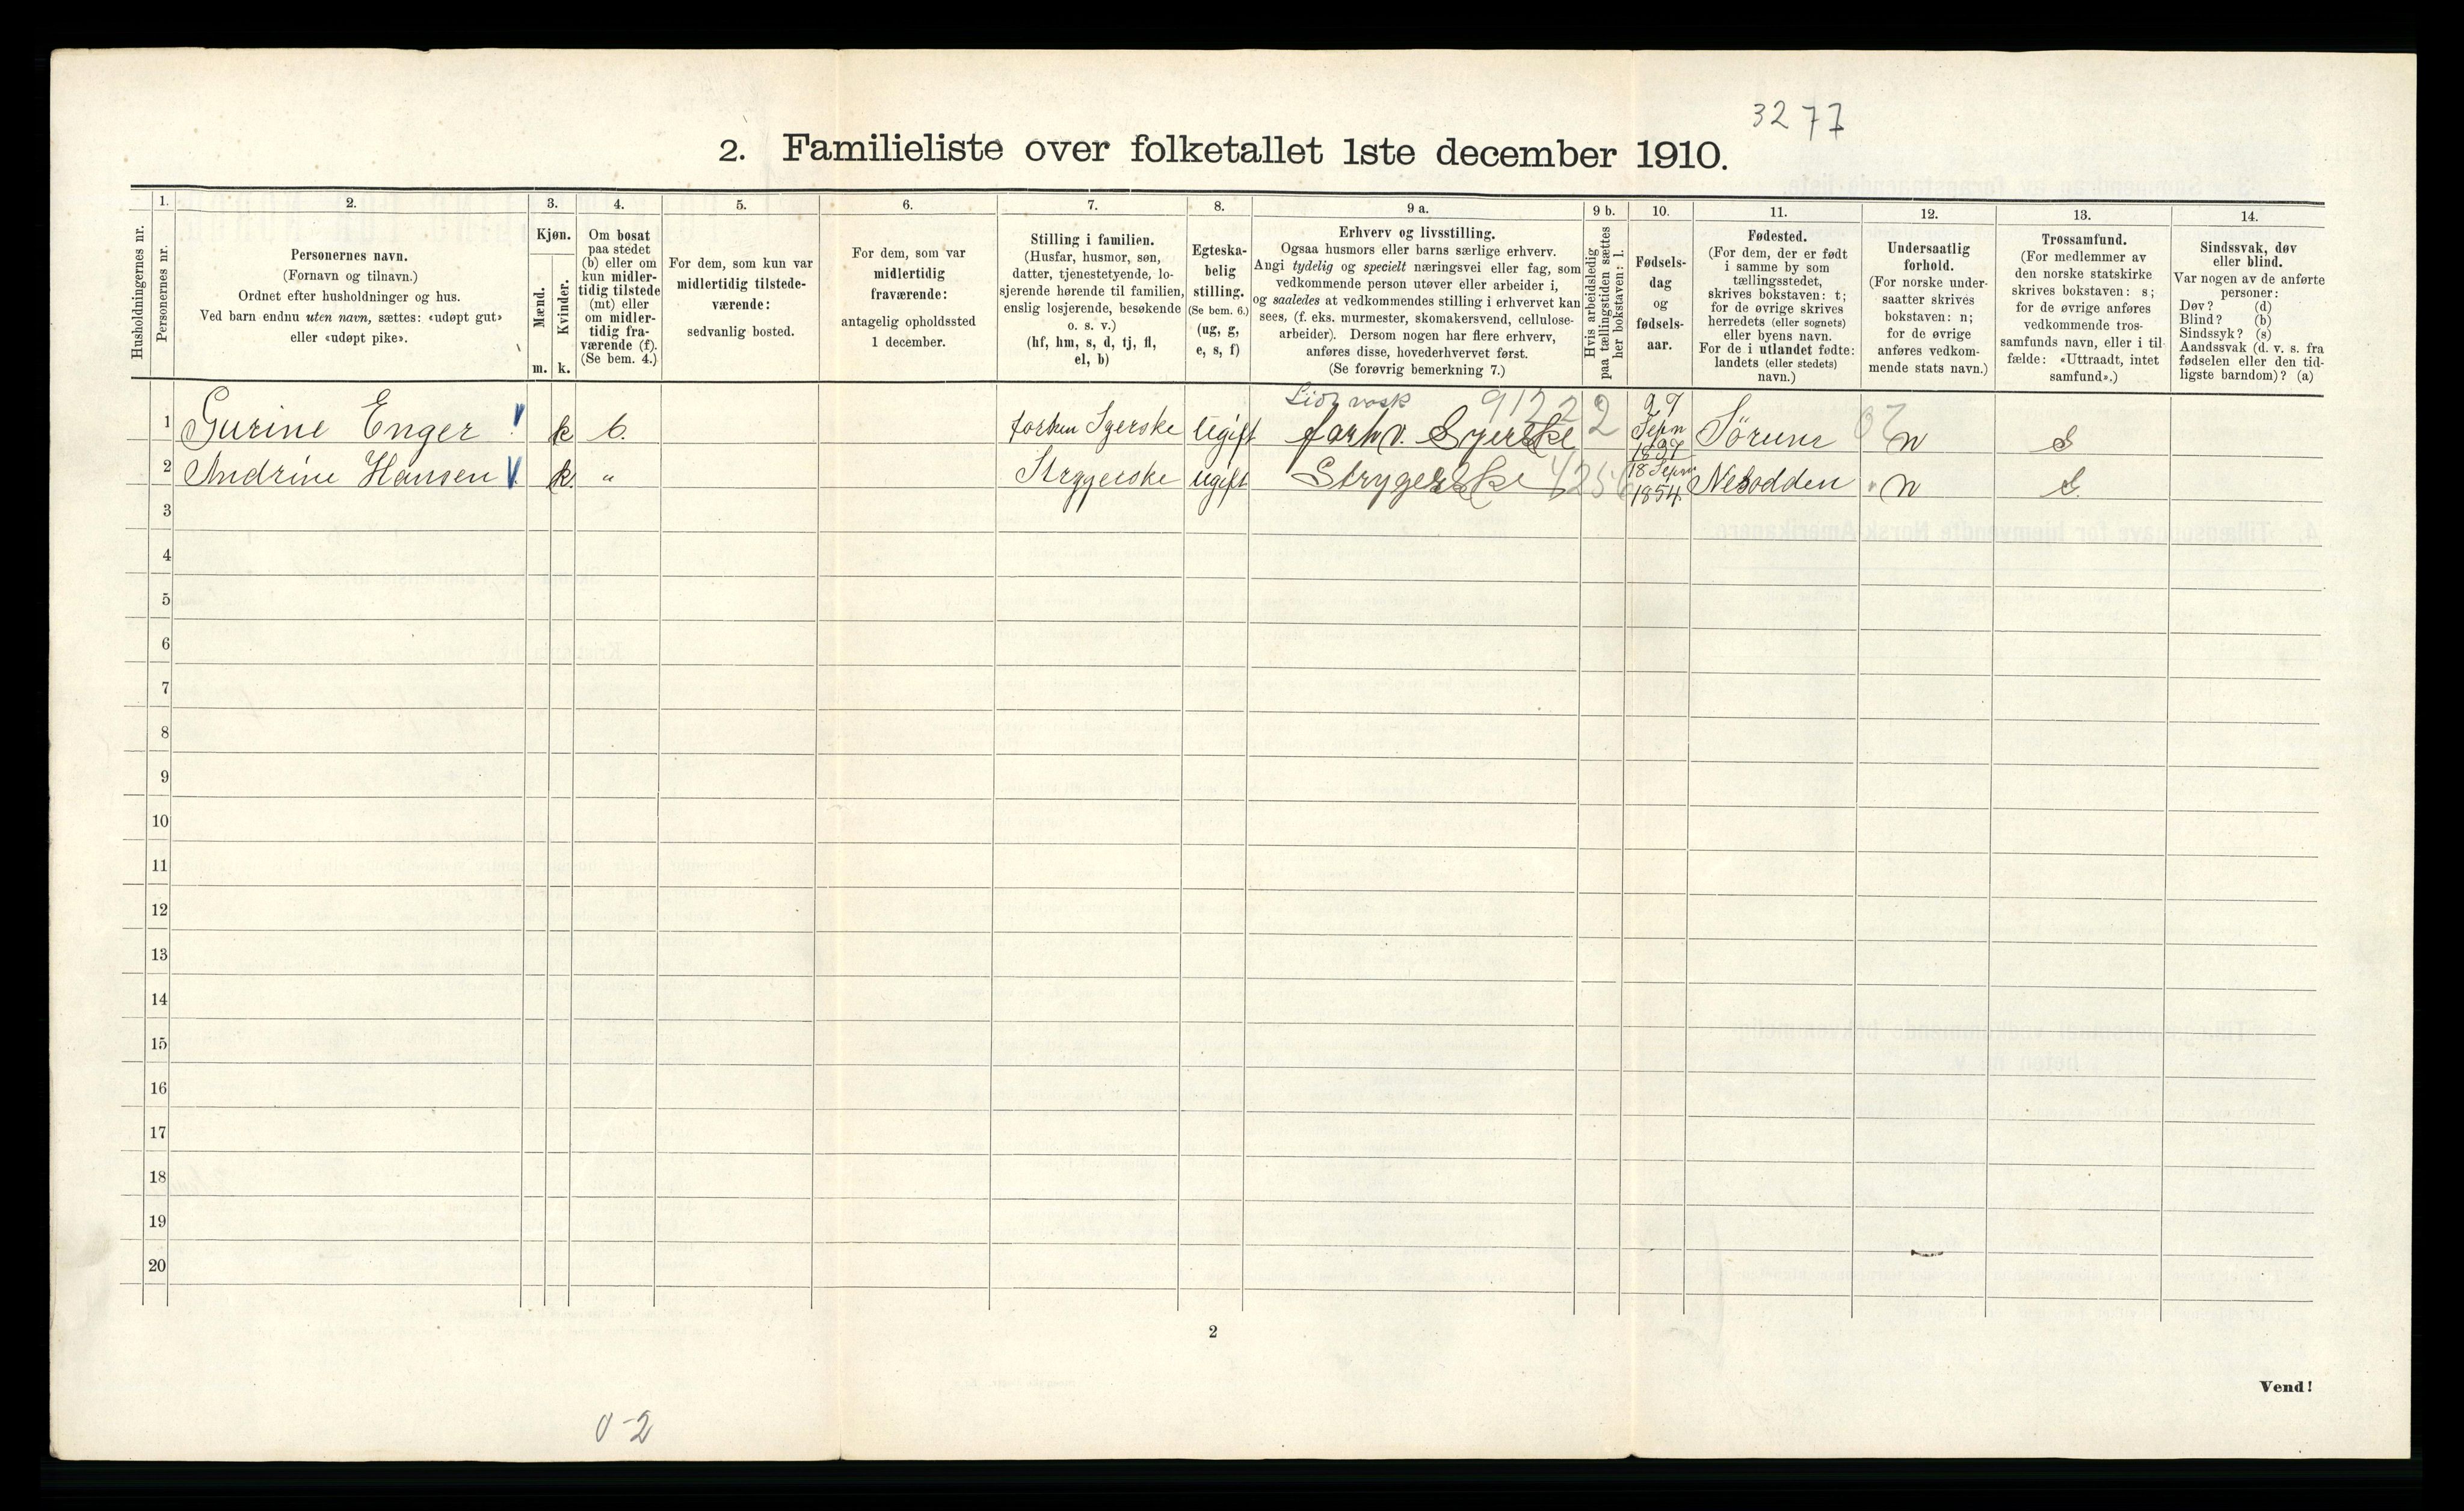 3277
2. Familieliste over folketallet 1ste december 1910.
Husholdningernes nr.
1.
Personernes nr.
2.
Personernes navn.
(Fornavn og tilnavn.)
Ordnet efter husholdninger og hus.
Ved barn endnu uten navn, sættes: «udøpt gut»
eller «udøpt pike».
3.
Kjøn.
Mænd.
Kvinder.
m.
k.
4.
Om bosat
paa stedet
(b) eller om
kun midler-
tidig tilstede
(mt) eller
om midler-
tidig fra-
værende (f).
(Se bem. 4.)
5.
For dem, som kun var
midlertidig tilstede-
værende:
sedvanlig bosted.
6.
For dem, som var
midlertidig
fraværende:
antagelig opholdssted
1 december.
7.
Stilling i familien.
(Husfar, husmor, søn,
datter, tjenestetyende, lo-
sjerende hørende til familien,
enslig losjerende, besøkende
o. s. v.)
(hf, hm, s, d, tj, fl,
el, b)
8.
Egteska-
belig
stilling.
(Se bem. 6.)
(ug, g,
e, s, f)
9 a.
Erhverv og livsstilling.
Ogsaa husmors eller barns særlige erhverv.
Angi tydelig og specielt næringsvei eller fag, som
vedkommende person utøver eller arbeider i,
og saaledes at vedkommendes stilling i erhvervet kan
sees, (f. eks. murmester, skomakersvend, cellulose-
arbeider). Dersom nogen har flere erhverv,
anføres disse, hovederhvervet først.
(Se forøvrig bemerkning 7.)
9 b.
Hvis arbeidsledig
paa tællingstiden sættes
her bokstaven: l.
10.
Fødsels-
dag
og
fødsels-
aar.
11.
Fødested.
(For dem, der er født
i samme by som
tællingsstedet,
skrives bokstaven: t;
for de øvrige skrives
herredets (eller sognets)
eller byens navn.
For de i utlandet fødte:
landets (eller stedets)
navn.)
12.
Undersaatlig
forhold.
(For norske under-
saatter skrives
bokstaven: n;
for de øvrige
anføres vedkom-
mende stats navn.)
13.
Trossamfund.
(For medlemmer av
den norske statskirke
skrives bokstaven: s;
for de øvrige anføres
vedkommende tros-
samfunds navn, eller i til-
fælde: «Uttraadt, intet
samfund».)
14.
Sindssvak, døv
eller blind.
Var nogen av de anførte
personer:
Døv? (d)
Blind? (b)
Sindssyk? (s)
Aandssvak (d. v. s. fra
fødselen eller den tid-
ligste barndom)? (a)
9122 2
1 Gurine Enger k b. Syerske Ugift forhv. Syerske 27 Sepn Sörum n S
2 Andrine Hansen k. " Strygerske Ugift Strygerske 18 Sepn 1854. Nesodden n S.
3
4
5
6
7
8
9
10
11
12
13
14
15
16
17
18
19
20
2
Vend!
0-2